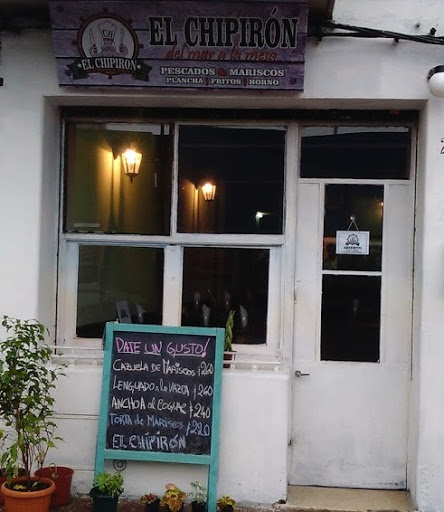 EL CHIPIRÓN
del mar a la mesa
PESCADOS & MARISCOS
PLANCHA FRITOS HORNO
EL CHIPIRON
ABIERTO
DATE UN GUSTO!
CAZUELA DE MARISCOS $260
LENGUADO a la VASCA $260
ANCHOA al COGÑAC $240
TORTA de MARISCOS $220
EL CHIPIRÓN